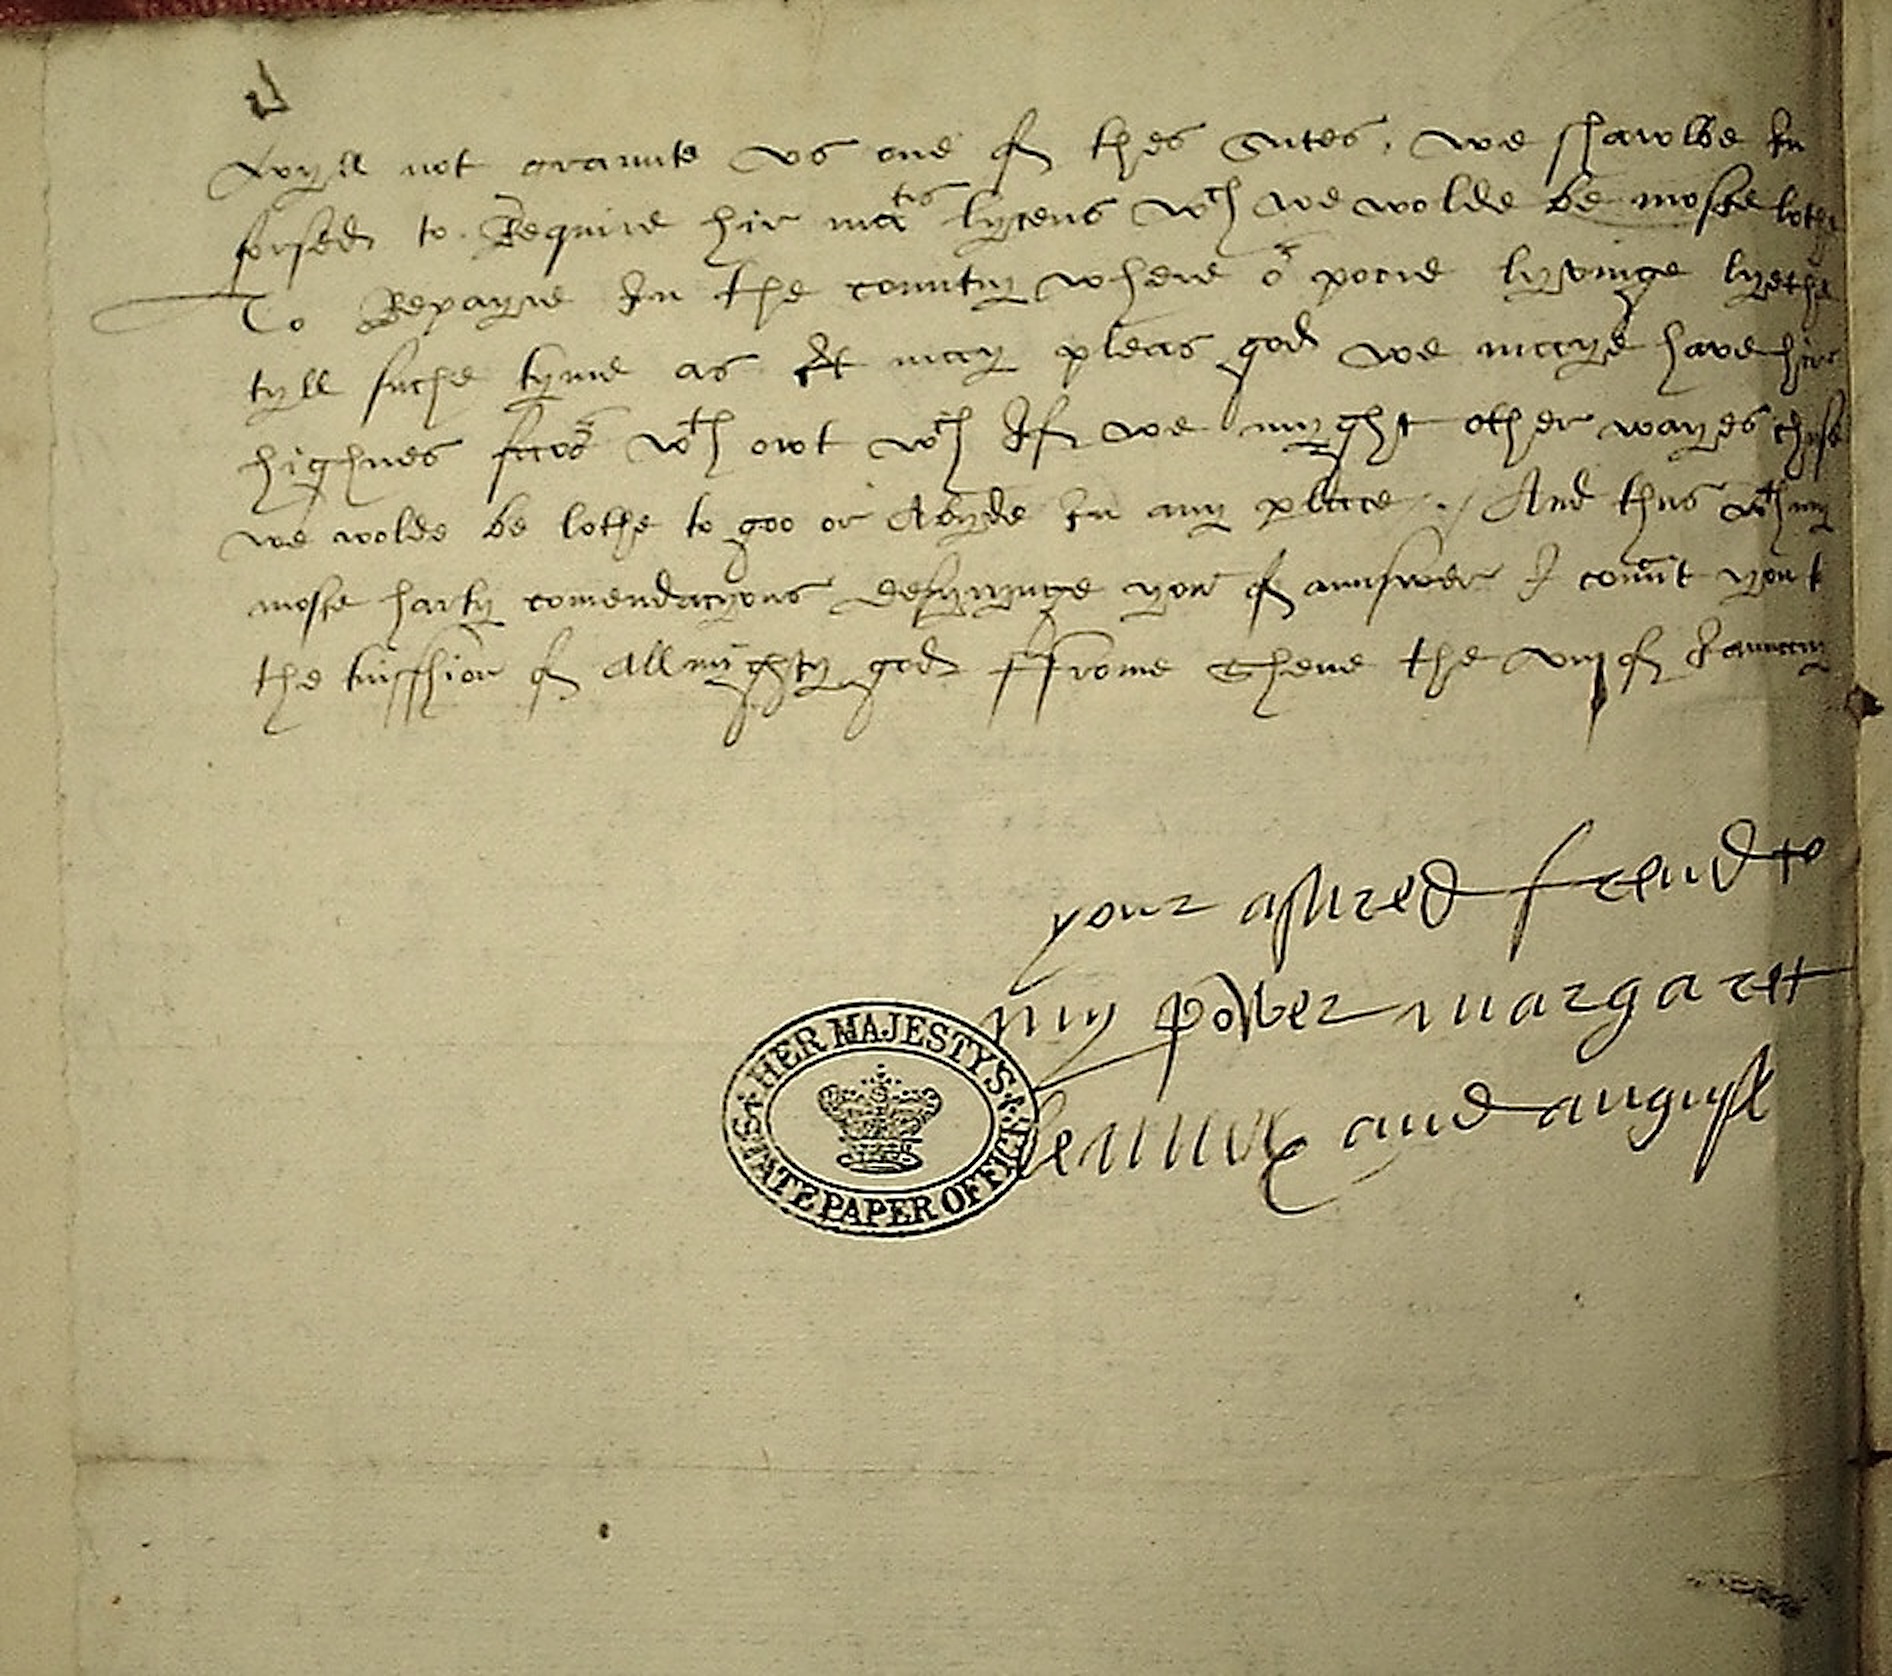 wyll not graunte vs one of thes sutes, we shawlbe In
forsed to Require hir ma^tis lycens w^ch we wolde be moste lothe
To Repayre In the country where o^r poore lyvinge lyethe
tyll suche tyme as It may pleas god we maye have hir
highnes favo^r w^th owt w^ch If we myght other wayes chuse
we wolde be lothe to goo or Abyde In any place. And thus w^th my
moste harty comendacyons desyrynge yow of aunswer I comit you to
the tuisshion of All mighty god ffrome Shene the of January
your assured frend to
my power margaret
lennox and anguse
HER MAJESTY'S
STATE PAPER OFFICE